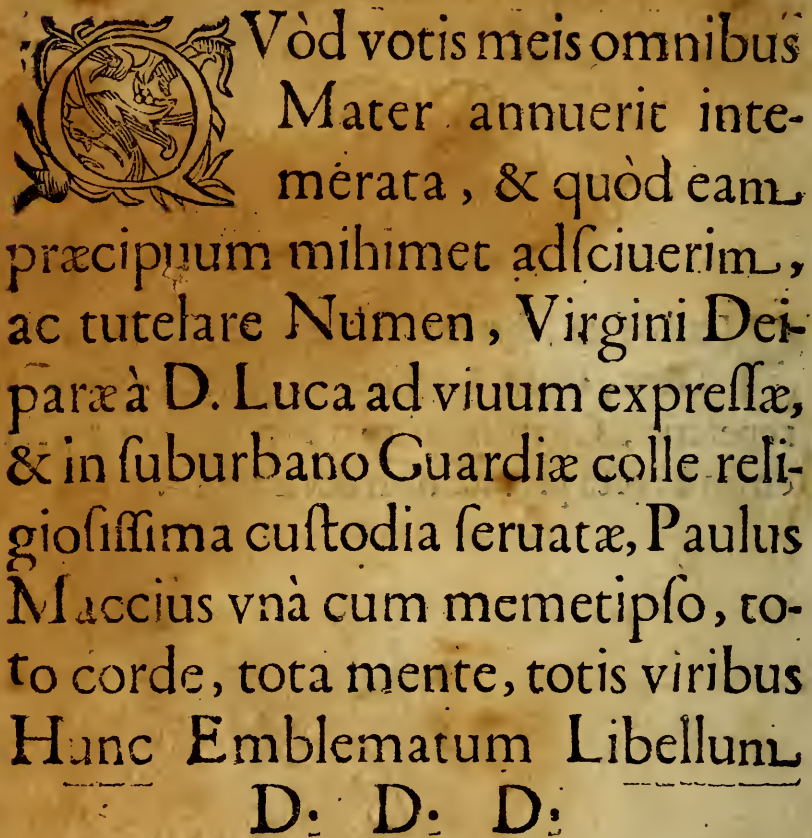 QVòd votis meis omnibus
Mater annuerit inte-
merata, & quòd eam
præcipuum mihimet adſciuerim,
ac tutelare Numen, Virgini Dei-
paræ à D. Luca ad viuum expreſſæ,
& in ſuburbano Guardiæ colle reli-
gioſiſſima cuſtodia ſeruatæ, Paulus
Maccius vnà cum memetipſo, to-
to corde, tota mente, totis viribus
Hunc Emblematum Libellum
D: D: D: